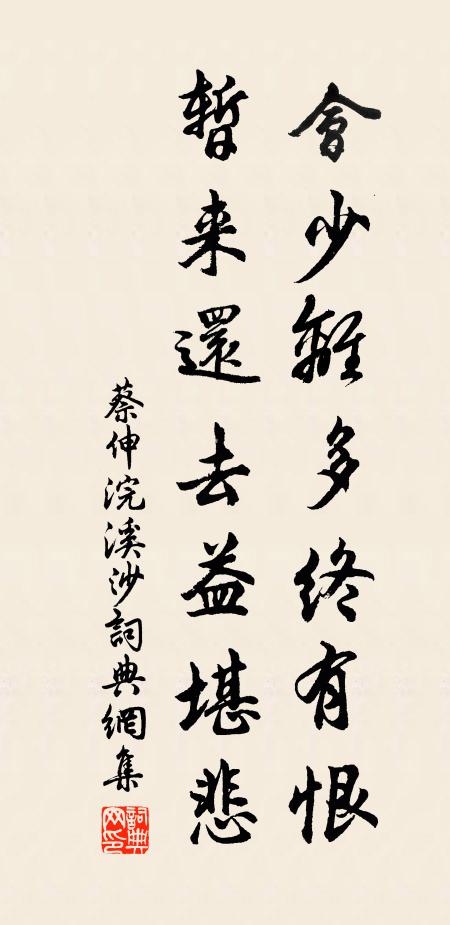 會少離多終有恨
暫来還去益堪悲
蔡伸浣溪沙詞典網集
詞典网印